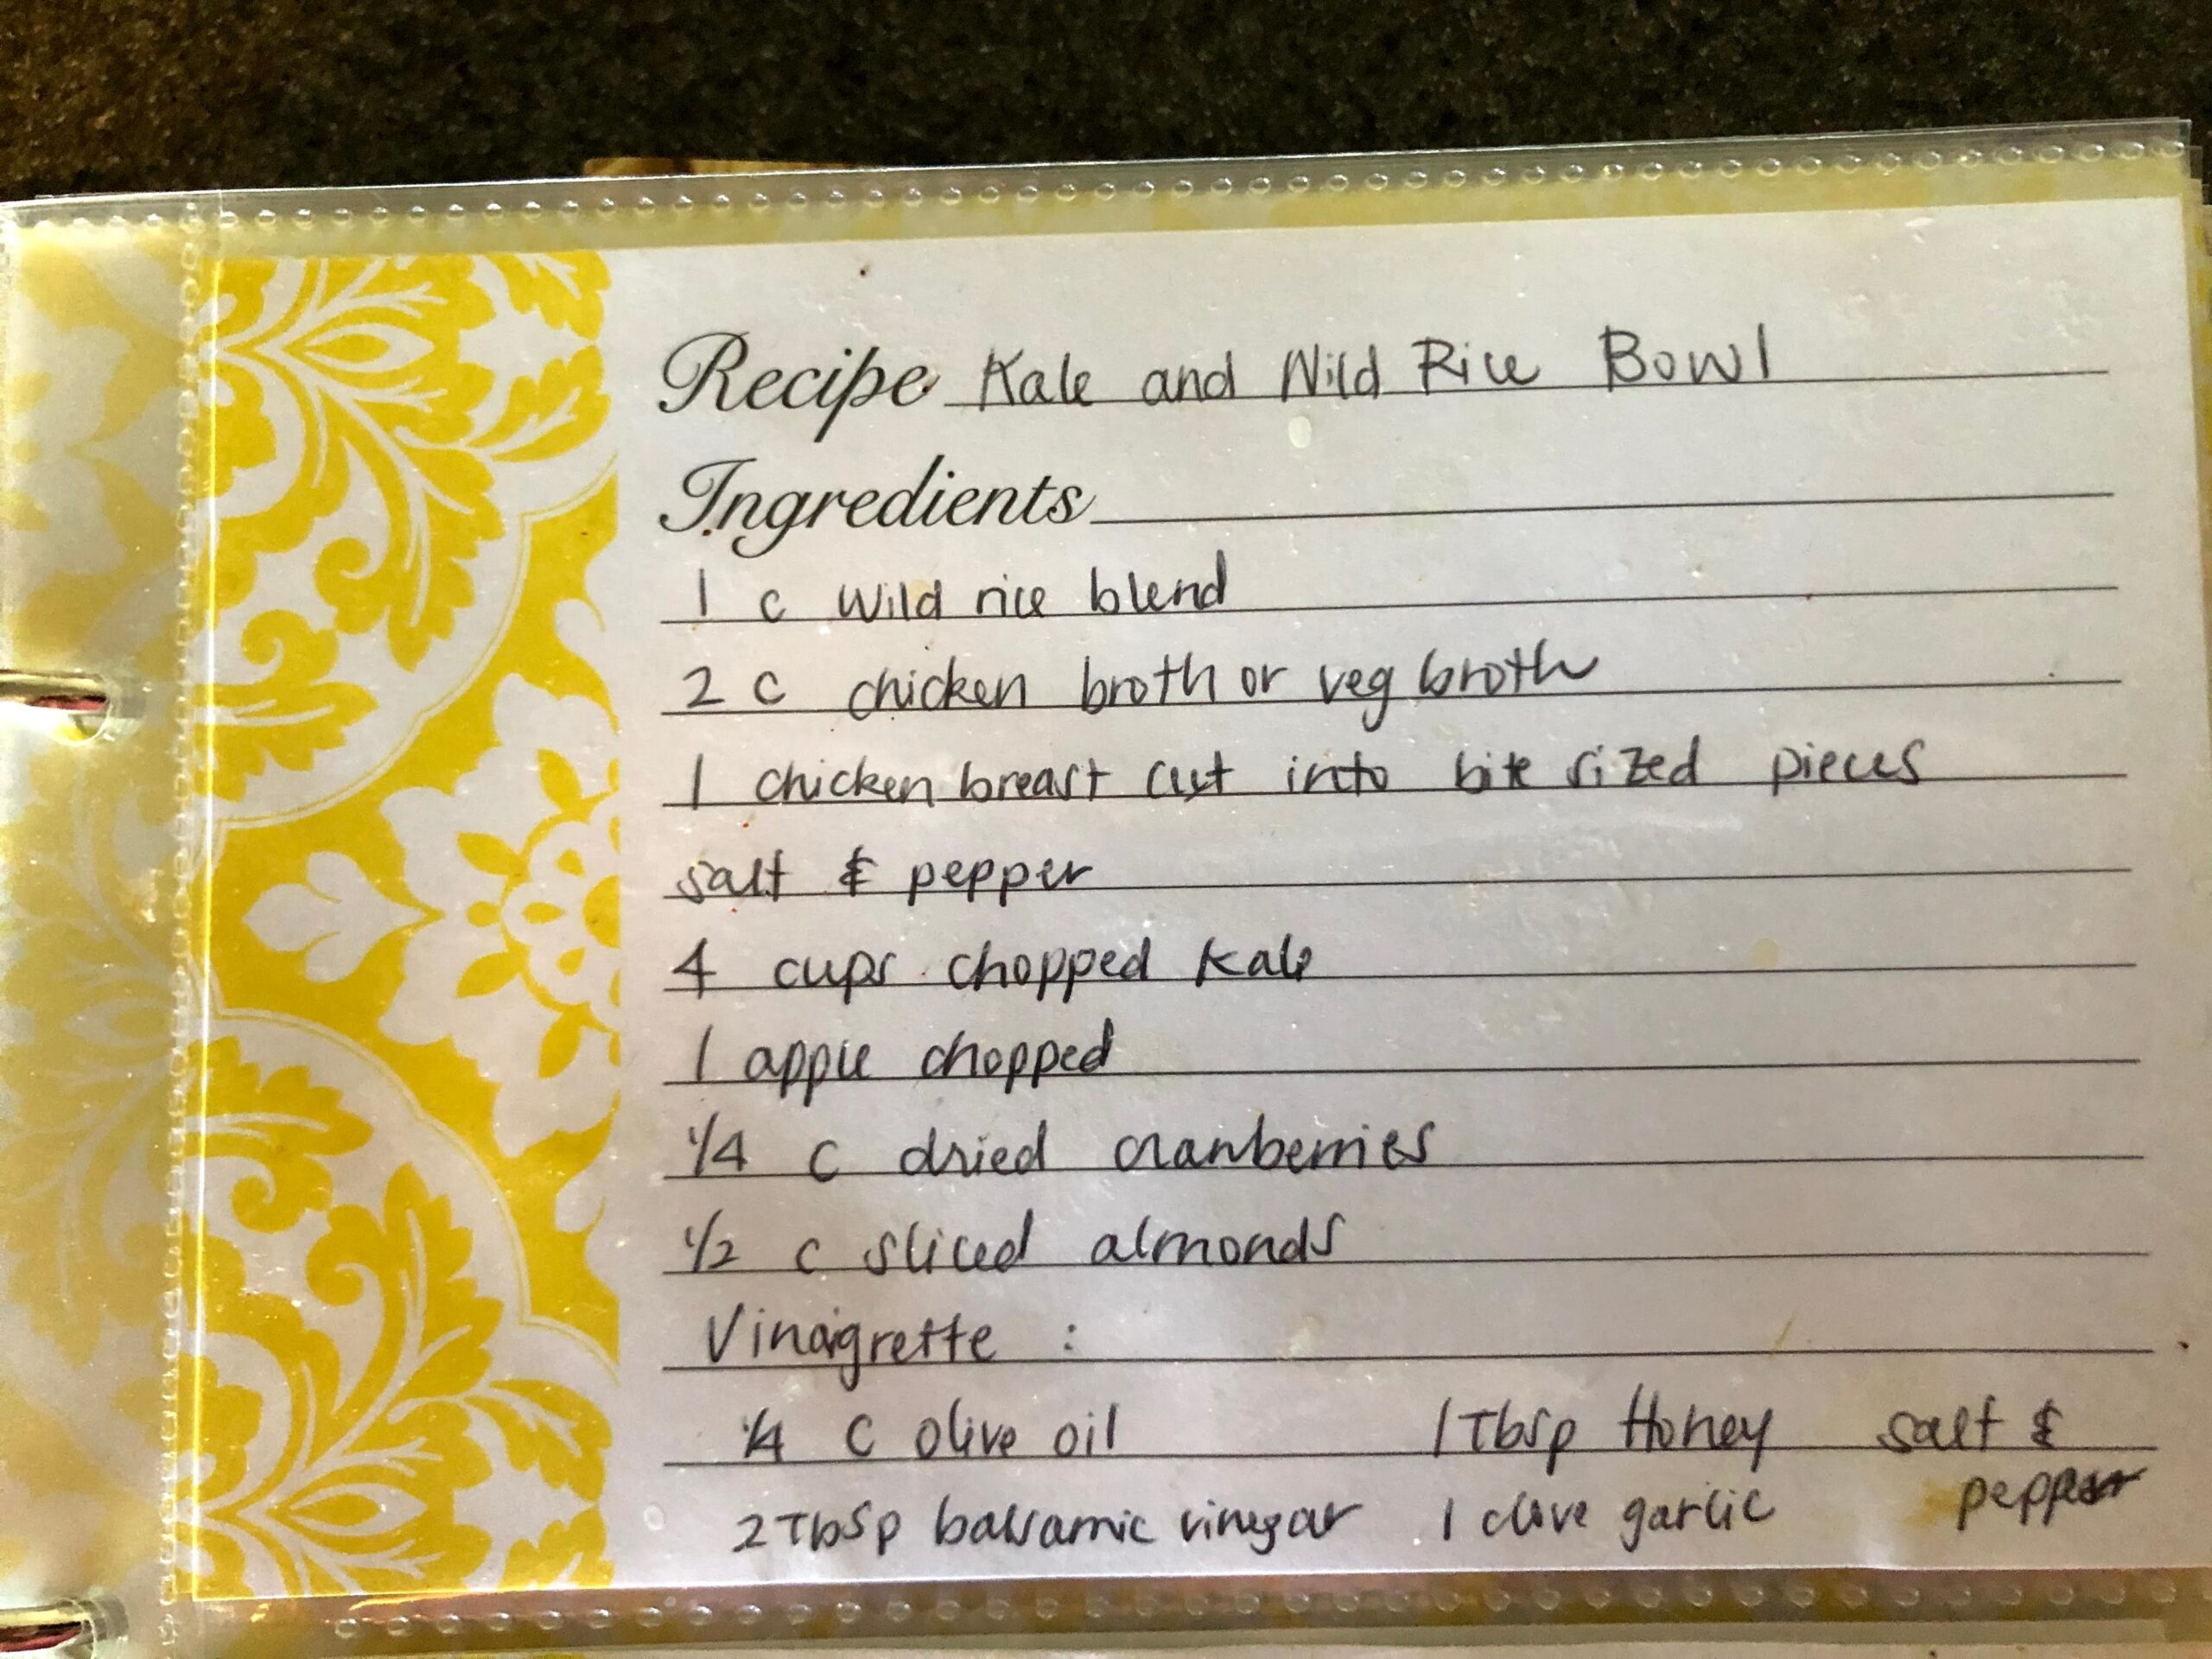 Recipe Kale and Wild Rice Bowl
Ingredients
1 c wild rice blend
2 c chicken broth or veg broth
1 chicken breast cut into bite sized pieces
salt & pepper
4 cups chopped kale
1 apple chopped
1/4 c dried cranberries
1/2 c sliced almonds
Vinaigrette :
1/4 c olive oil 1 Tbsp Honey salt &
2 Tbsp balsamic vinegar 1 clove garlic pepper